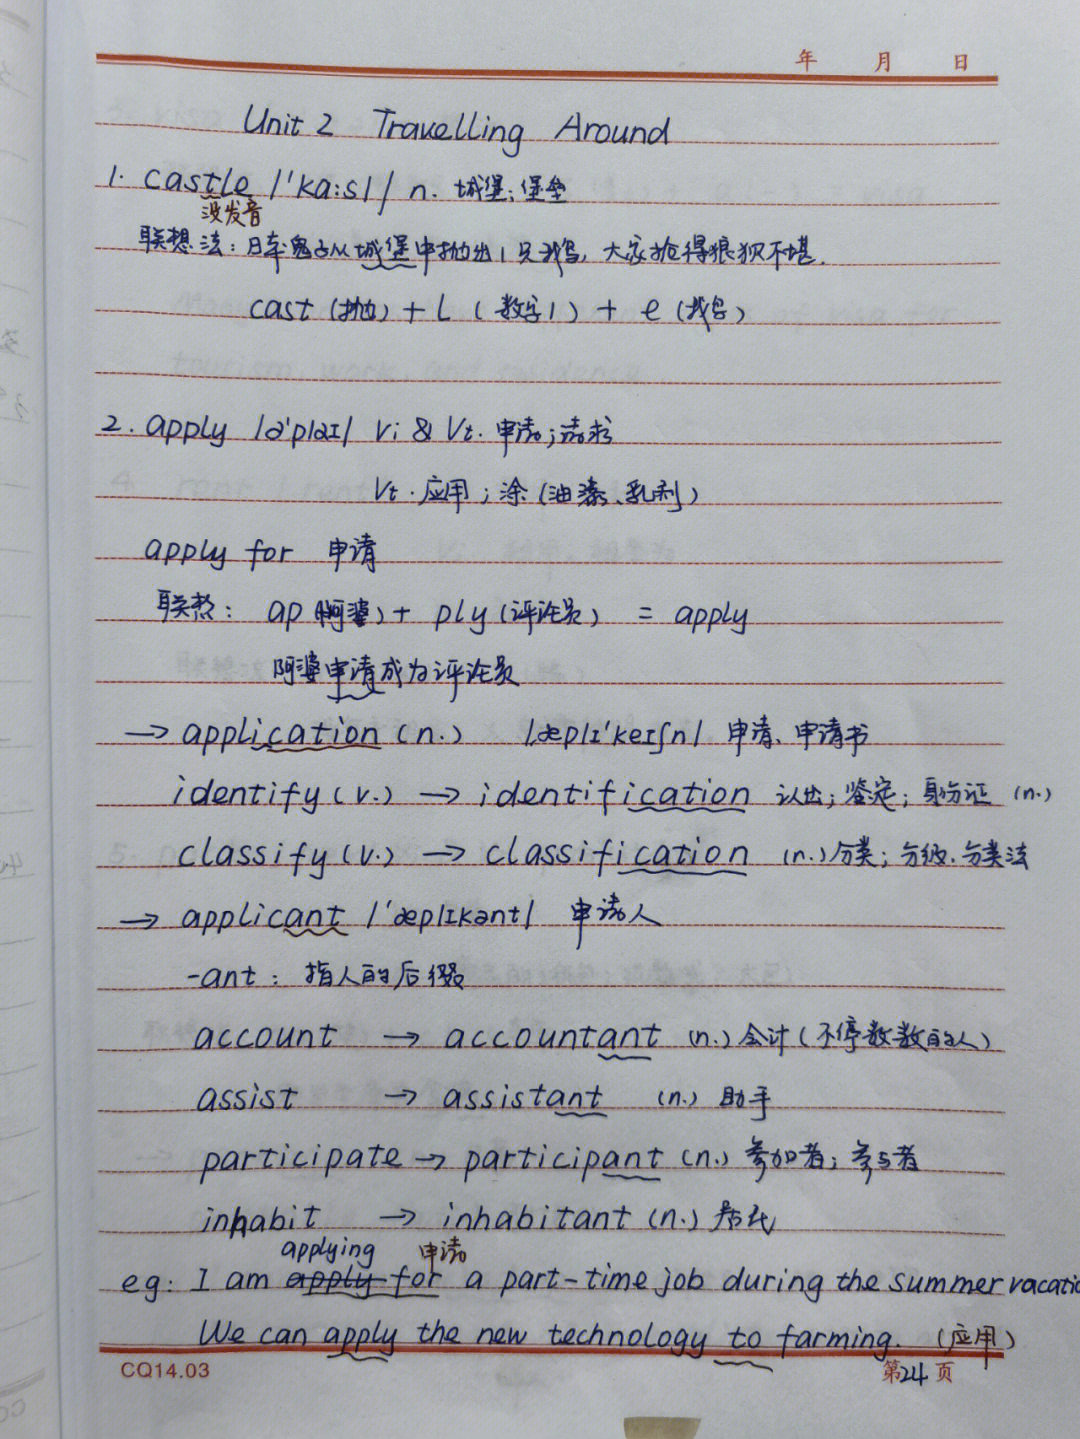 年 月 日
Unit 2 Travelling Around
1. castle /'ka:sl/ n. 城堡; 堡垒
没发音
联想法: 日本鬼子从城堡中抛出1只鹅, 大家抢得狼狈不堪.
cast (抛) + L (数字1) + e (鹅)
2. apply /ə'plaɪ/ vi & vt. 申请; 请求
vt. 应用; 涂 (油漆、乳剂)
apply for 申请
联想: ap (阿婆) + ply (评论员) = apply
阿婆申请成为评论员
→ application (n.) /æplɪ'keɪʃn/. 申请、申请书
identify (v.) → identification 认出; 鉴定; 身份证 (n.)
classify (v.) → classification (n.) 分类; 分级、分类法
→ applicant /'æplɪkənt/ 申请人
-ant: 指人的后缀
account → accountant (n.) 会计 (不停数数的人)
assist → assistant (n.) 助手
participate → participant (n.) 参加者; 参与者
inhabit → inhabitant (n.) 居民
applying 申请
eg: I am apply for a part-time job during the summer vacatio
We can apply the new technology to farming. (应用)
CQ14.03 第24页